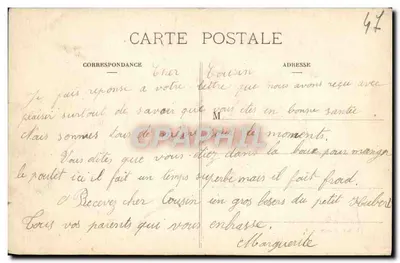 47
CARTE POSTALE
CORRESPONDANCE
ADRESSE
Cher Cousin
Je fais reponse a votre lettre que nous avons reçu avec
plaisir surtout de savoir que vous êtes en bonne santée
M
Nous sommes tous de moments.
Vous dites que vous étiez dans la pour manger
le poulet ici il fait un temps superbe mais il fait froid.
Recevez cher Cousin un gros basers du petit Hubert
Tous vos parents qui vous enbrasse.
Marguerite